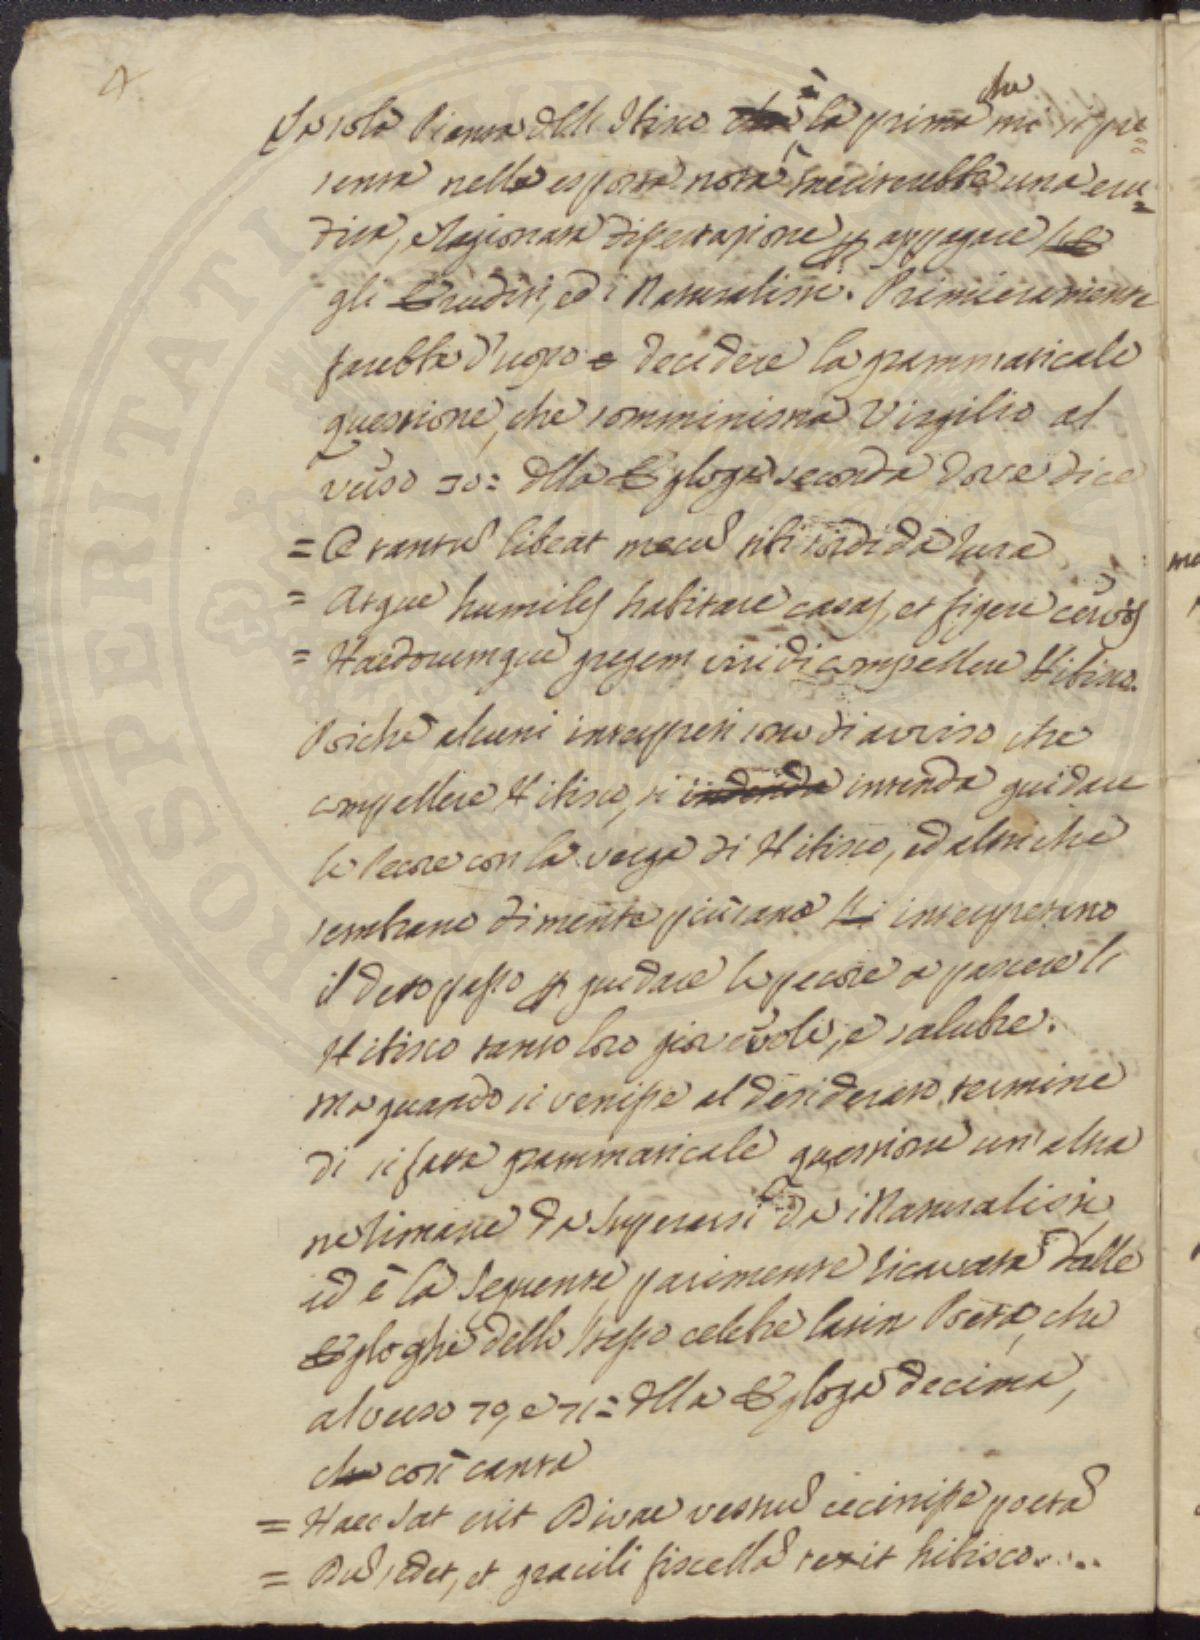 4
La sola Pianta dell' Ibisco è la prima che mi si pre=
senta nella esposta nota meriterebbe una eru=
dita, e ragionata dissertazione p appagare
gli Eruditi, ed i Naturalisti. Primieramente
sarebbe d'uopo decidere la grammaticale
questione, che somministra Virgilio al
verso 30= della Egloga seconda dove dice
= O tantu libeat mecu tibi sordida rura
= Atque humiles habitare casas, et figere cervos
= Haedorumque gregem viridi compellere Hibisco.
Poichè alcuni interpreti sono di avviso che
compellere Hibisco, si intenda guidare
le Pecore con la verga di Hibisco, ed altri che
sembrano di mente più sana interpretano
il detto passo p guidare le pecore a pascere l'
Hibisco tanto loro giovevole, e salubre.
Ma quando si venisse al desiderato termine
di sì fatta grammaticale questione un'altra
ne rimane da superarsi da i Naturalisti,
ed è la seguente parimente ricavata dalle
Egloghe dello stesso celebre latin Poeta, che
al verso 70, e 71= della Egloga decima,
così canta
= Haec sat erit Divae vestru cecinisse poeta
= Du sedet, et gracili fiscella texit hibisco.....